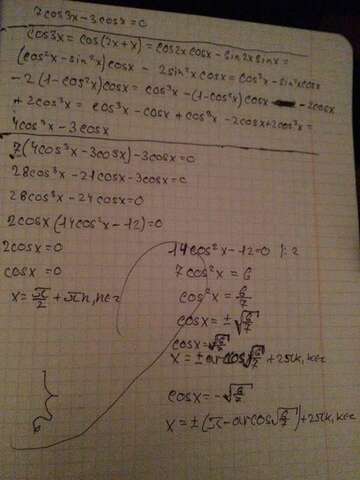 7cos3x-3cosx=0
cos3x = cos(2x+x) = cos2x cosx - sin2x sinx =
(cos²x - sin²x)cosx - 2sin²x cosx = cos³x - sin²x cosx
-2(1-cos²x)cosx = cos³x - (1-cos²x)cosx - 2cosx
+ 2cos³x = cos³x - cosx + cos³x - 2cosx + 2cos³x =
4cos³x - 3cosx
7(4cos³x - 3cosx) - 3cosx = 0
28cos³x - 21cosx - 3cosx = 0
28cos³x - 24cosx = 0
2cosx(14cos²x - 12) = 0
2cosx = 0
cosx = 0
x = π/2 + πn, n∈z
14cos²x - 12 = 0 |:2
7cos²x = 6
cos²x = 6/7
cosx = ±√6/7
cosx = √6/7
x = ±arccos√6/7 + 2πk, k∈z
cosx = -√6/7
x = ±(π - arccos√6/7) + 2πk, k∈z